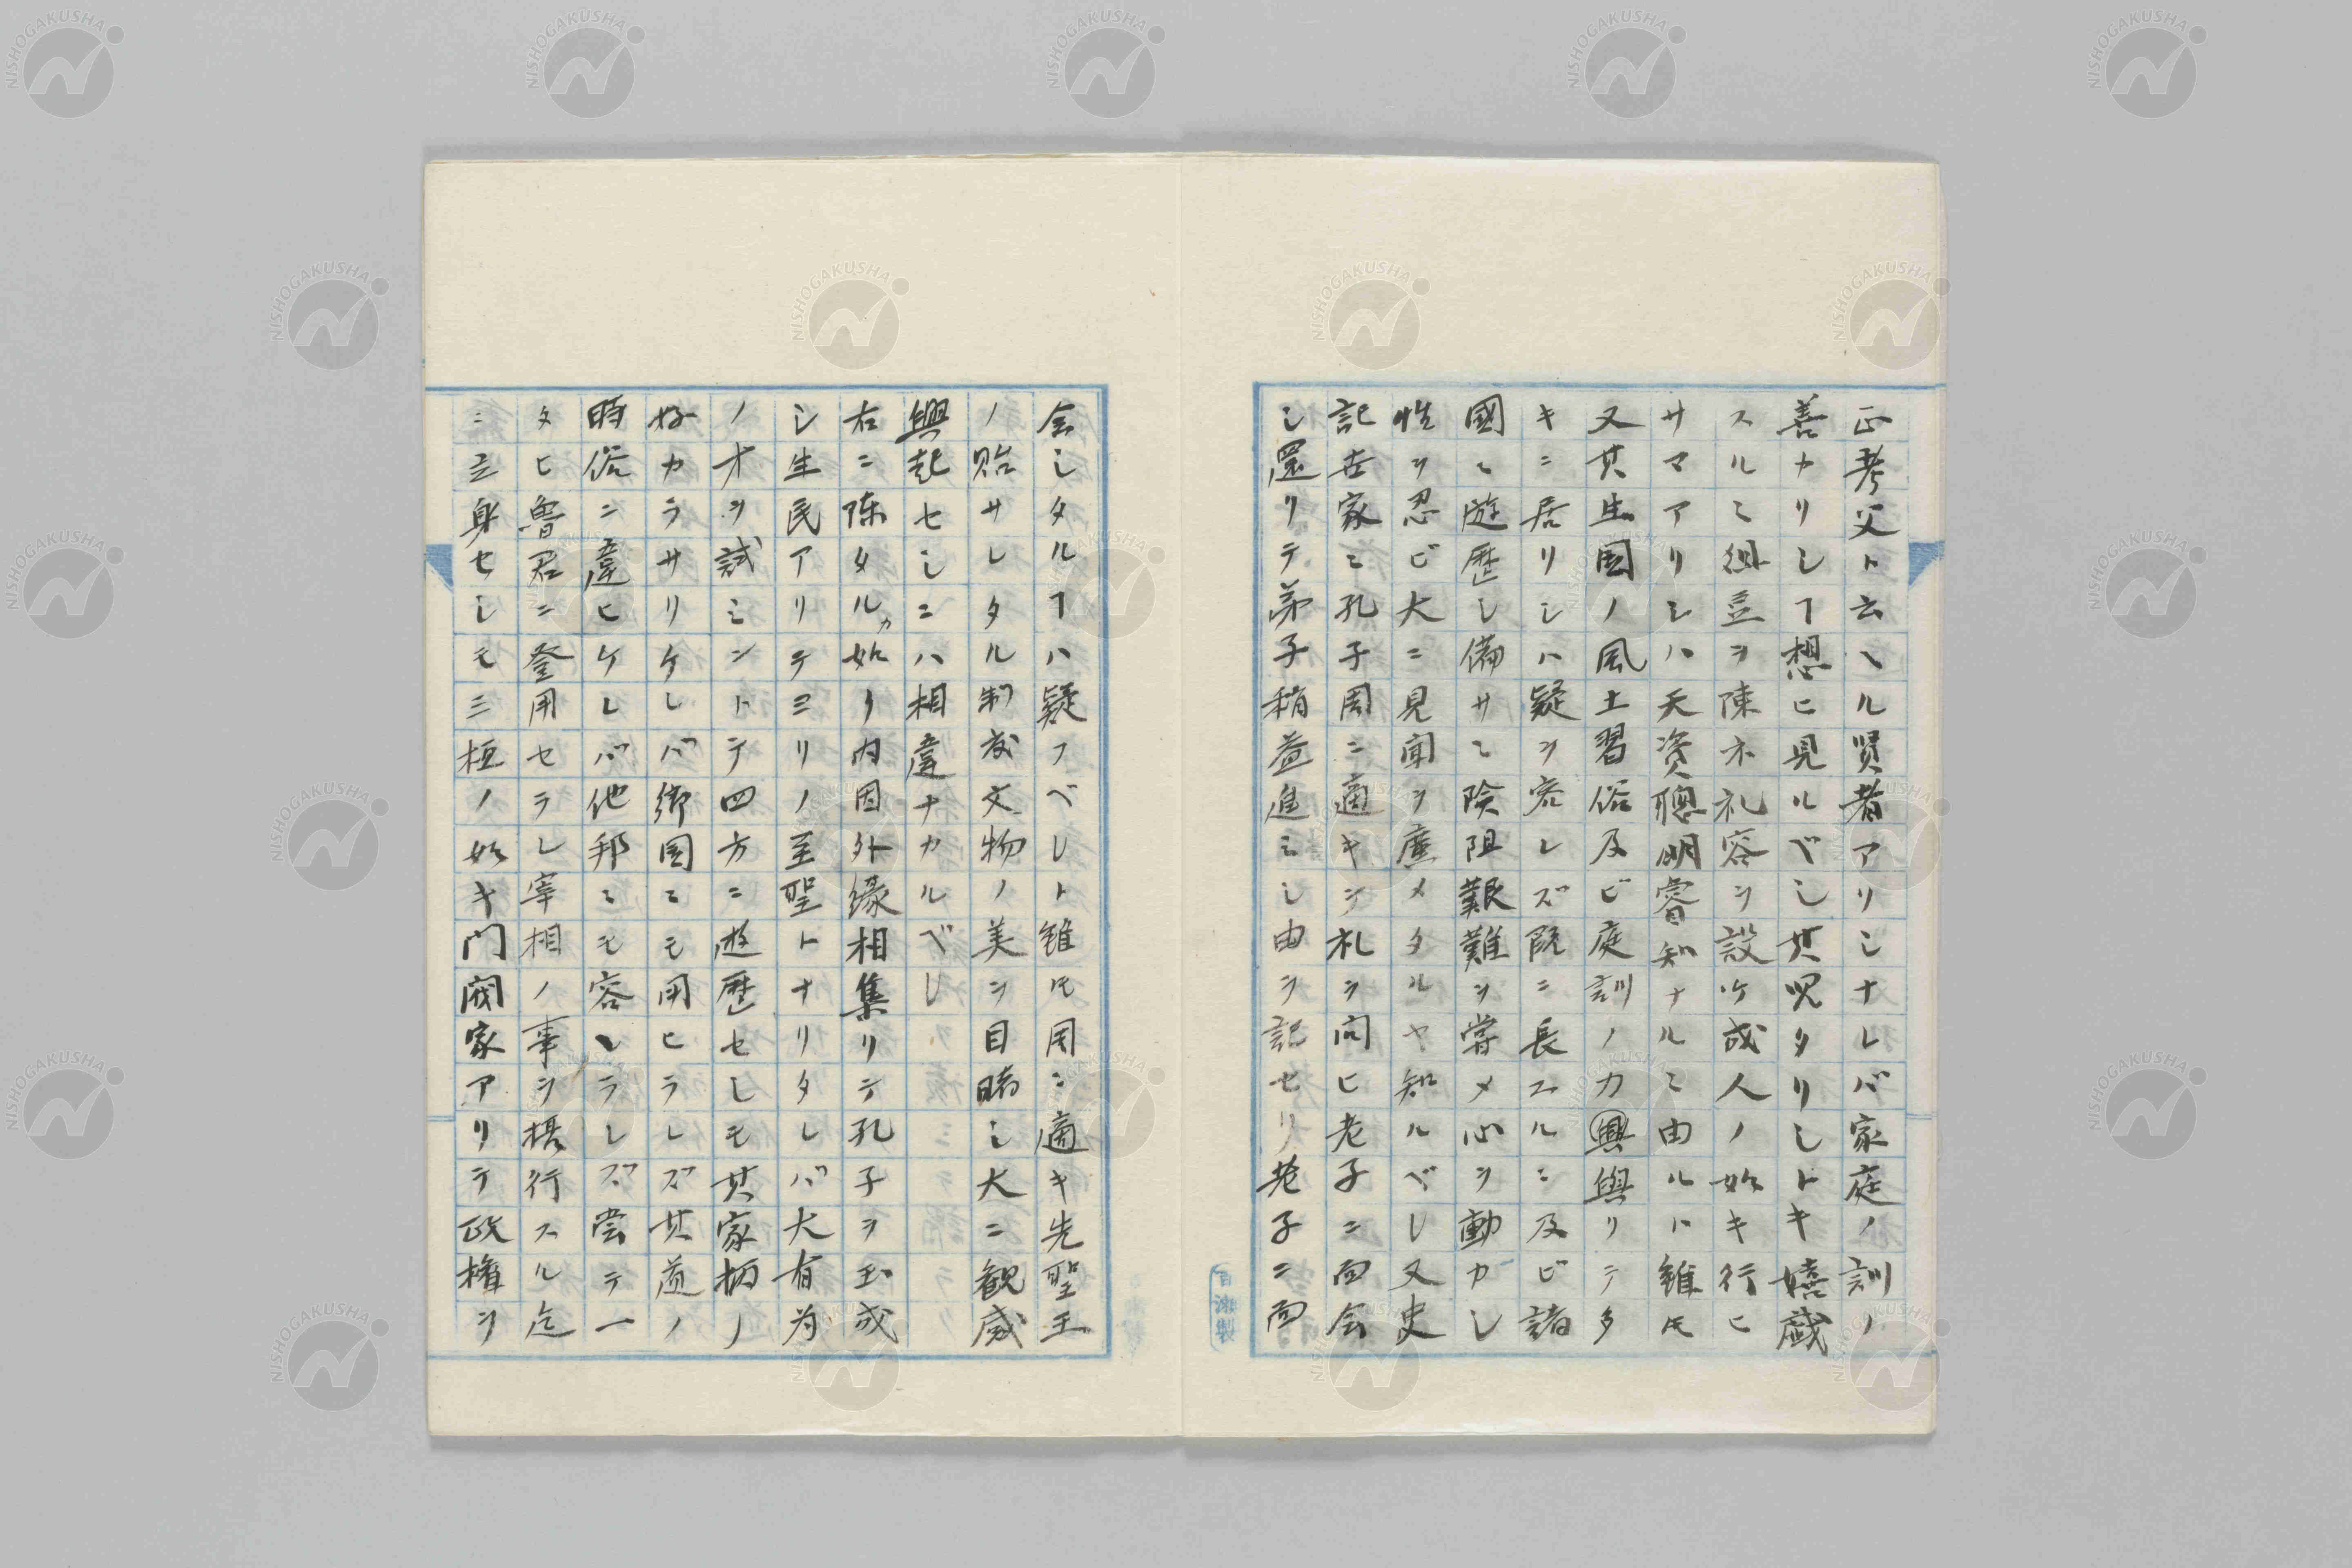 正考父ト云ヘル賢者アリシナレバ家庭ノ訓ノ
善ナリシヿ想ヒ見ルベシ其児タリシトキ嬉戯
スルニ俎豆ヲ陳ネ礼容ヲ設ケ成人ノ如キ行ヒ
サマアリシハ天資聰明睿知ナルニ由ルト雖モ
又其生国ノ風土習俗及ビ庭訓ノ力興與リテ多
キニ居リシハ疑ヲ容レズ既ニ長ズルニ及ビ諸
國ニ遊歴シ備サニ険阻艱難ヲ甞メ心ヲ動カシ
性ヲ忍ビ大ニ見聞ヲ廣メタルヤ知ルベシ又史
記世家ニ孔子周ニ適キ礼ヲ問ヒ老子ニ面会
シ還リテ弟子稍益進ミシ由ヲ記セリ老子ニ面
会シタルヿハ疑フベシト雖モ周ニ適キ先聖王
ノ貽サレタル制度文物ノ美ヲ目睹シ大ニ観感
興起セシニハ相違ナカルベシ
右ニ陳タルカ如ク内因外縁相集リテ孔子ヲ玉成
シ生民アリテヨリノ至聖トナリタレバ大有為
ノ才ヲ試ミントテ四方ニ遊歴セシモ其家柄ノ
好カラサリケレバ郷国ニモ用ヒラレズ其道ノ
時俗ニ違ヒケレバ他邦ニモ容レラレズ嘗テ一
タビ魯君ニ登用セラレ宰相ノ事ヲ摂行スル迄
ニ立身セシモ三桓ノ如キ門閥家アリテ政権ヲ